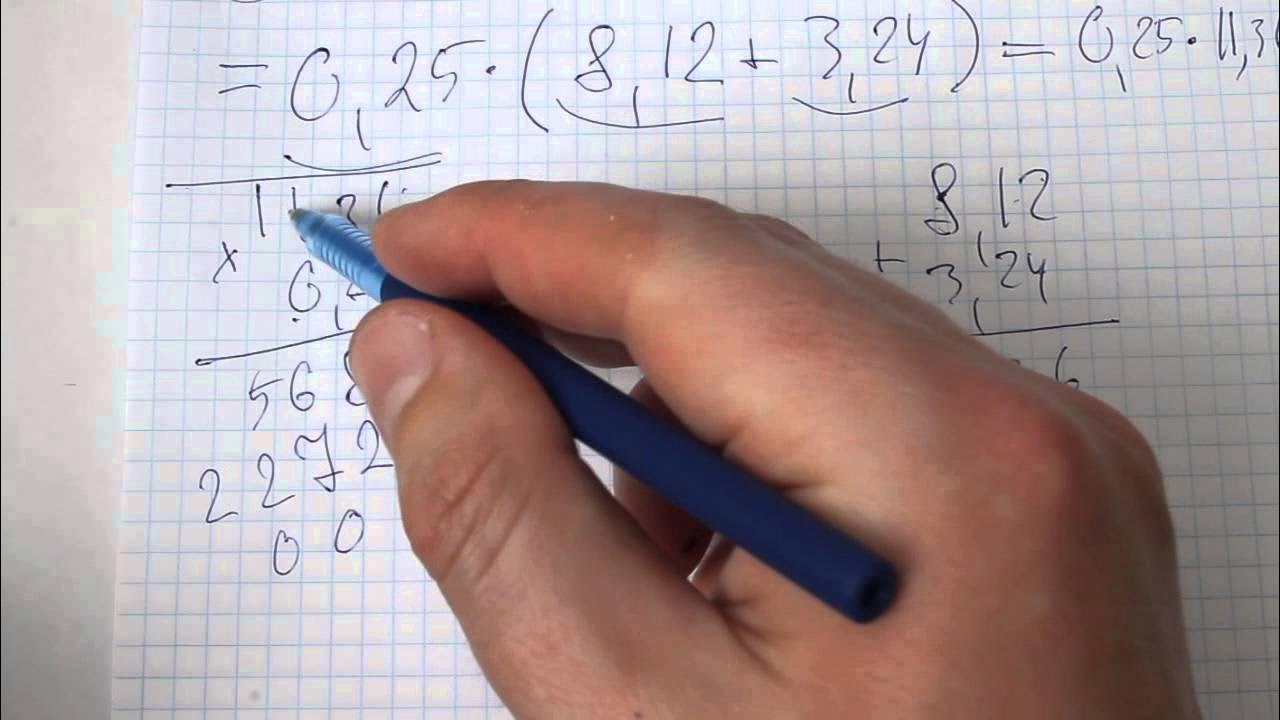 = 0,25 · (8,12 + 3,24) = 0,25 · 11,3
113
× 0,
568
2272
00
8,12
+ 3,24
6